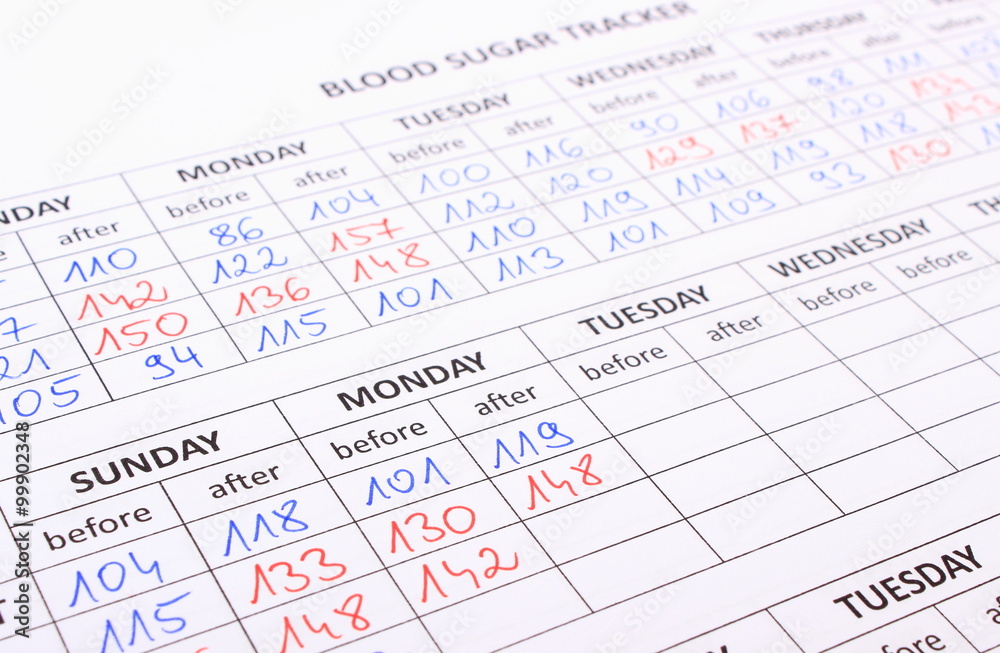 BLOOD SUGAR TRACKER
MONDAY TUESDAY WEDNESDAY THURSDAY
after before after before after before after before after
110 86 104 100 116 90 106 98 111
142 122 157 112 120 129 137 120 134
150 136 148 110 119 114 119 118 143
105 94 115 101 113 101 109 93 130
SUNDAY MONDAY TUESDAY WEDNESDAY
before after before after before after before before
104 118 101 119
115 133 130 148
148 142
TUESDAY
Adobe Stock | #99902348